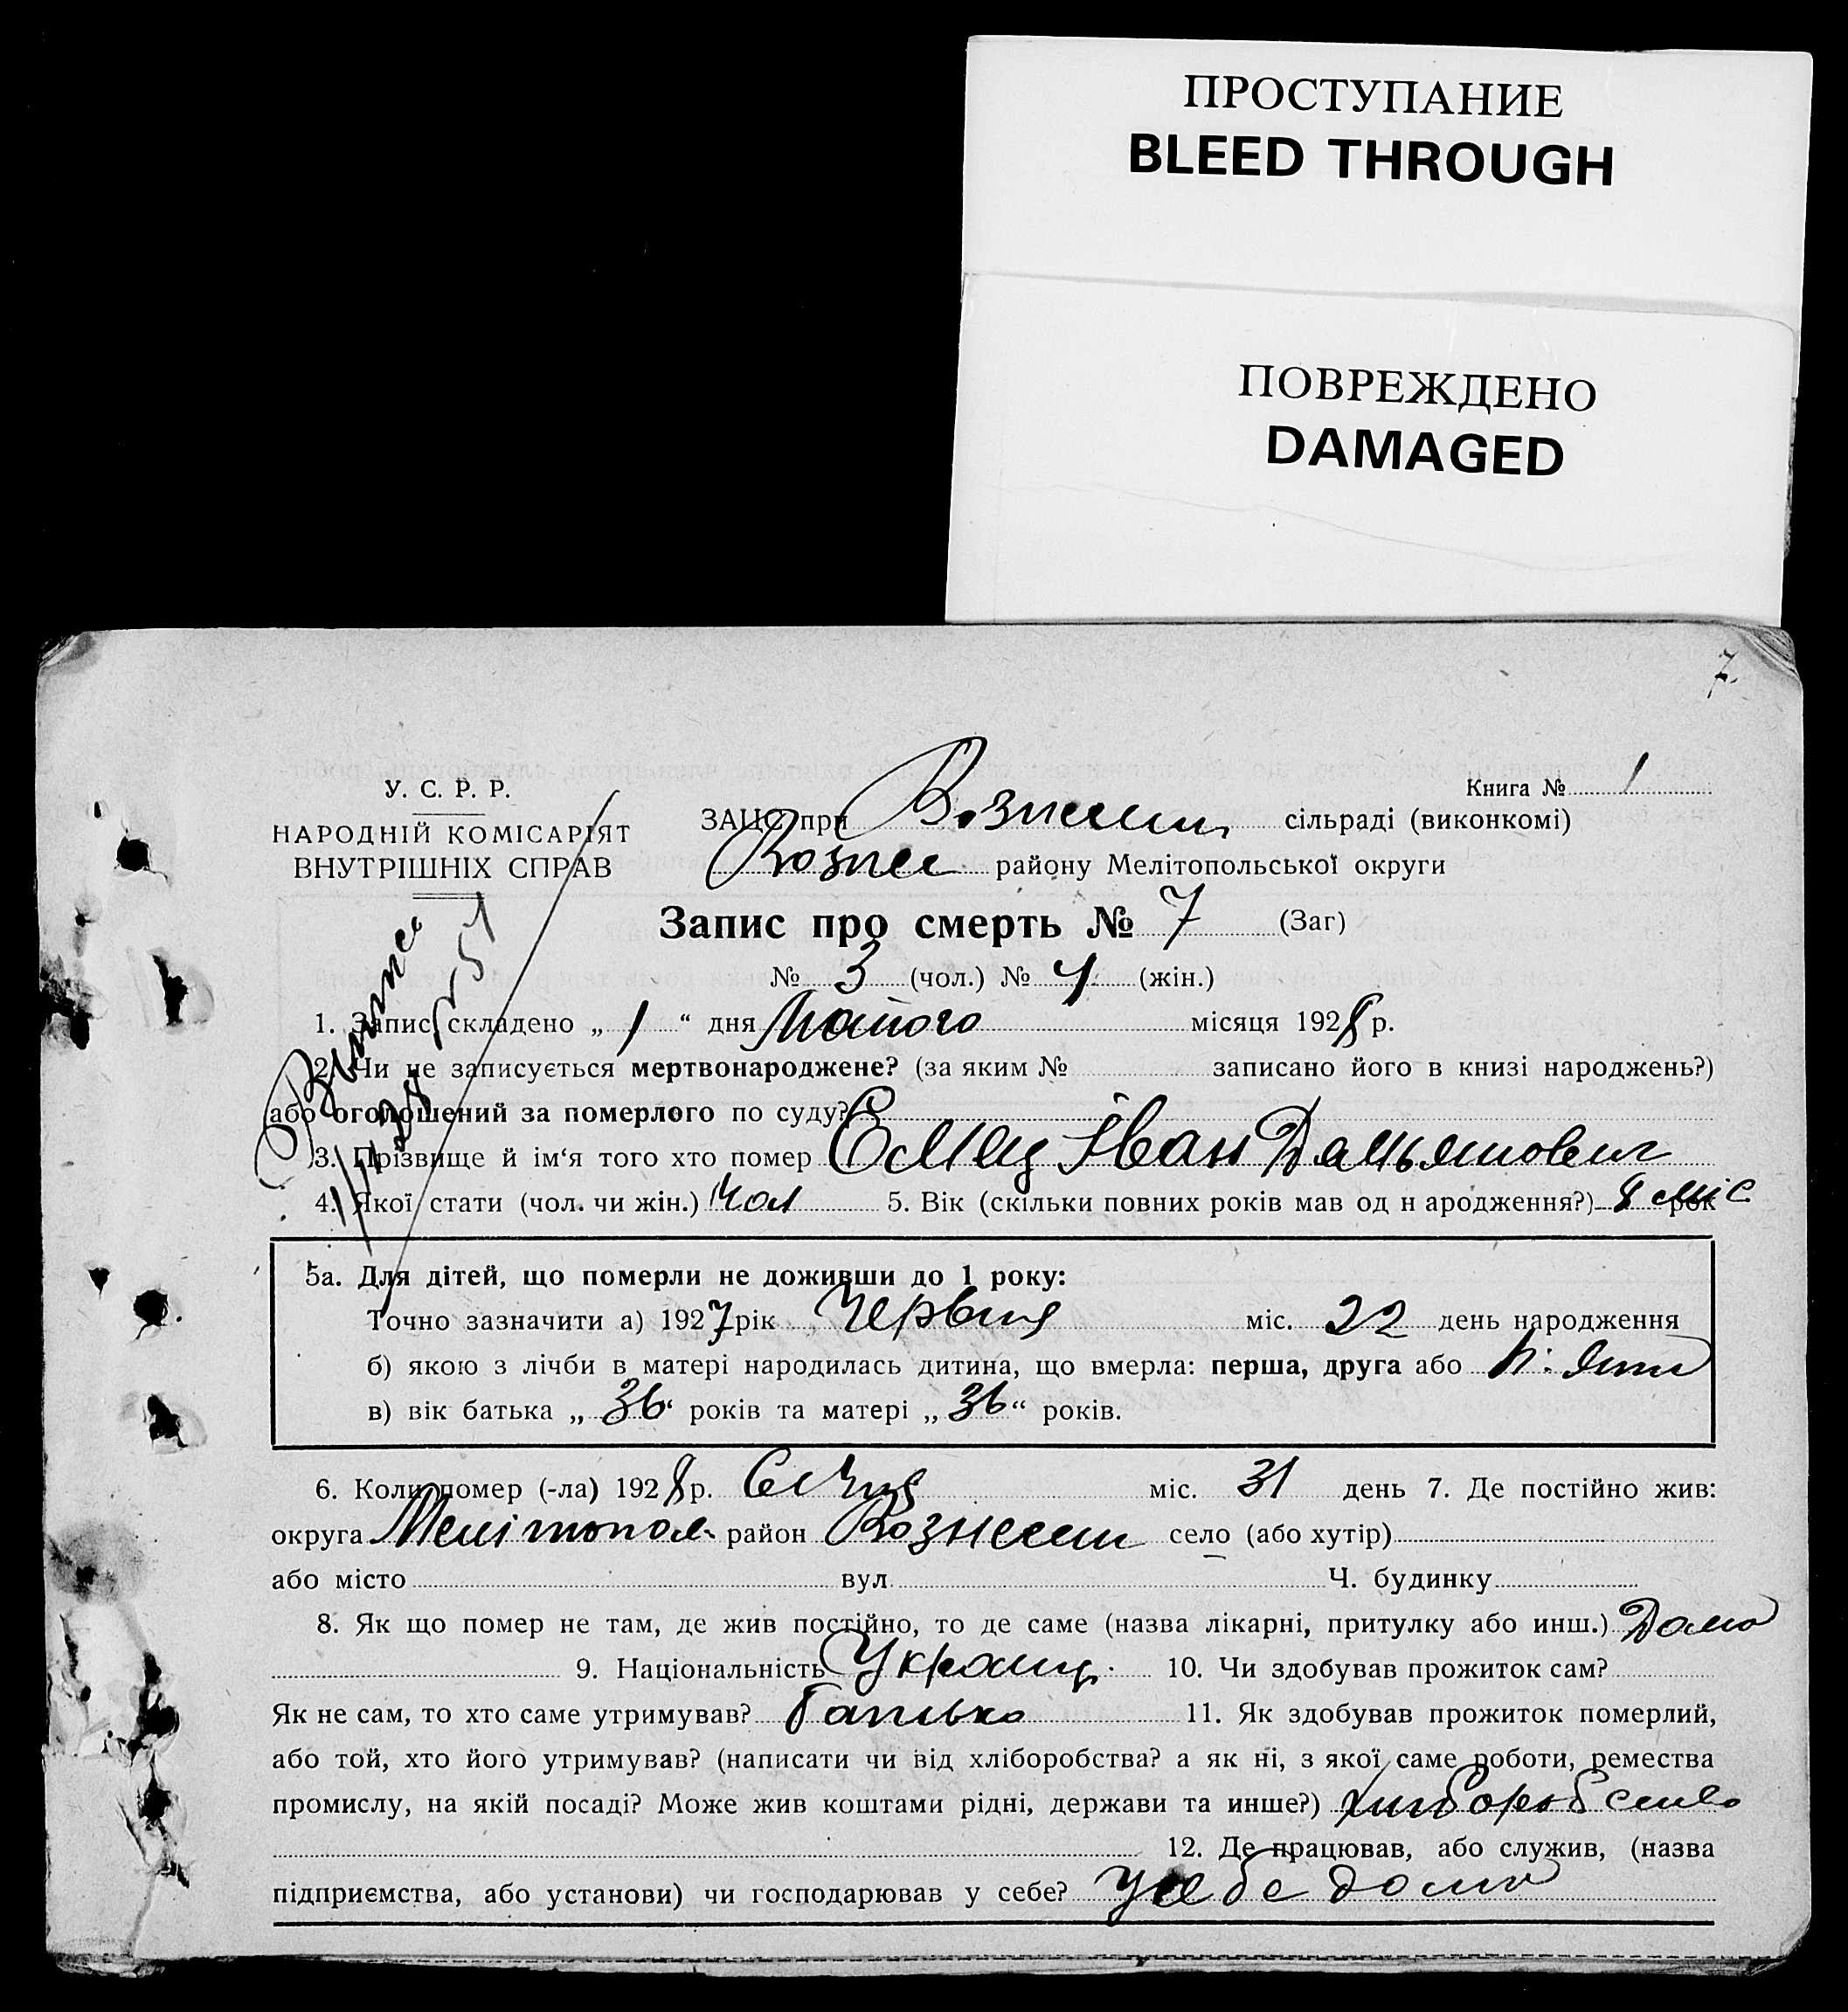 ПРОСТУПАНИЕ
BLEED THROUGH
ПОВРЕЖДЕНО
DAMAGED
7.
У. С. Р. Р.
НАРОДНІЙ КОМІСАРІЯТ
ВНУТРІШНІХ СПРАВ
Книга № 1
ЗАЦС при Вознесен сільраді (виконкомі)
Вознес району Мелітопольської округи
Запис про смерть № 7 (Заг)
№ 3 (чол.) № 4 (жін.)
1. Запис складено „ 1 “ дня Лютого місяця 1928 р.
2. Чи не записується мертвонароджене? (за яким № записано його в книзі народжень?)
або оголошений за померлого по суду?
3. Прізвище й ім‘я того хто помер Іван Дамьянович
4. Якої стати (чол. чи жін.) Чол 5. Вік (скільки повних років мав од н ародження?) 8 міс рок
5а. Для дітей, що померли не доживши до 1 року:
Точно зазначити а) 1927 рік Червня міс. 22 день народження
б) якою з лічби в матері народилась дитина, що вмерла: перша, друга або
в) вік батька „ 36 “ років та матері „ 36 “ років.
6. Коли помер (-ла) 1928 р. Січня міс. 31 день 7. Де постійно жив:
округа Мелітопол район Вознесен село (або хутір)
або місто вул. Ч. будинку
8. Як що помер не там, де жив постійно, то де саме (назва лікарні, притулку або инш.) Дома
9. Національність Украинц. 10. Чи здобував прожиток сам?
Як не сам, то хто саме утримував? батько 11. Як здобував прожиток померлий,
або той, хто його утримував? (написати чи від хліборобства? а як ні, з якої саме роботи, ремества
промислу, на якій посаді? Може жив коштами рідні, держави та инше?) хліборобство
12. Де працював, або служив, (назва
підприємства, або установи) чи господарював у себе? у себе дома